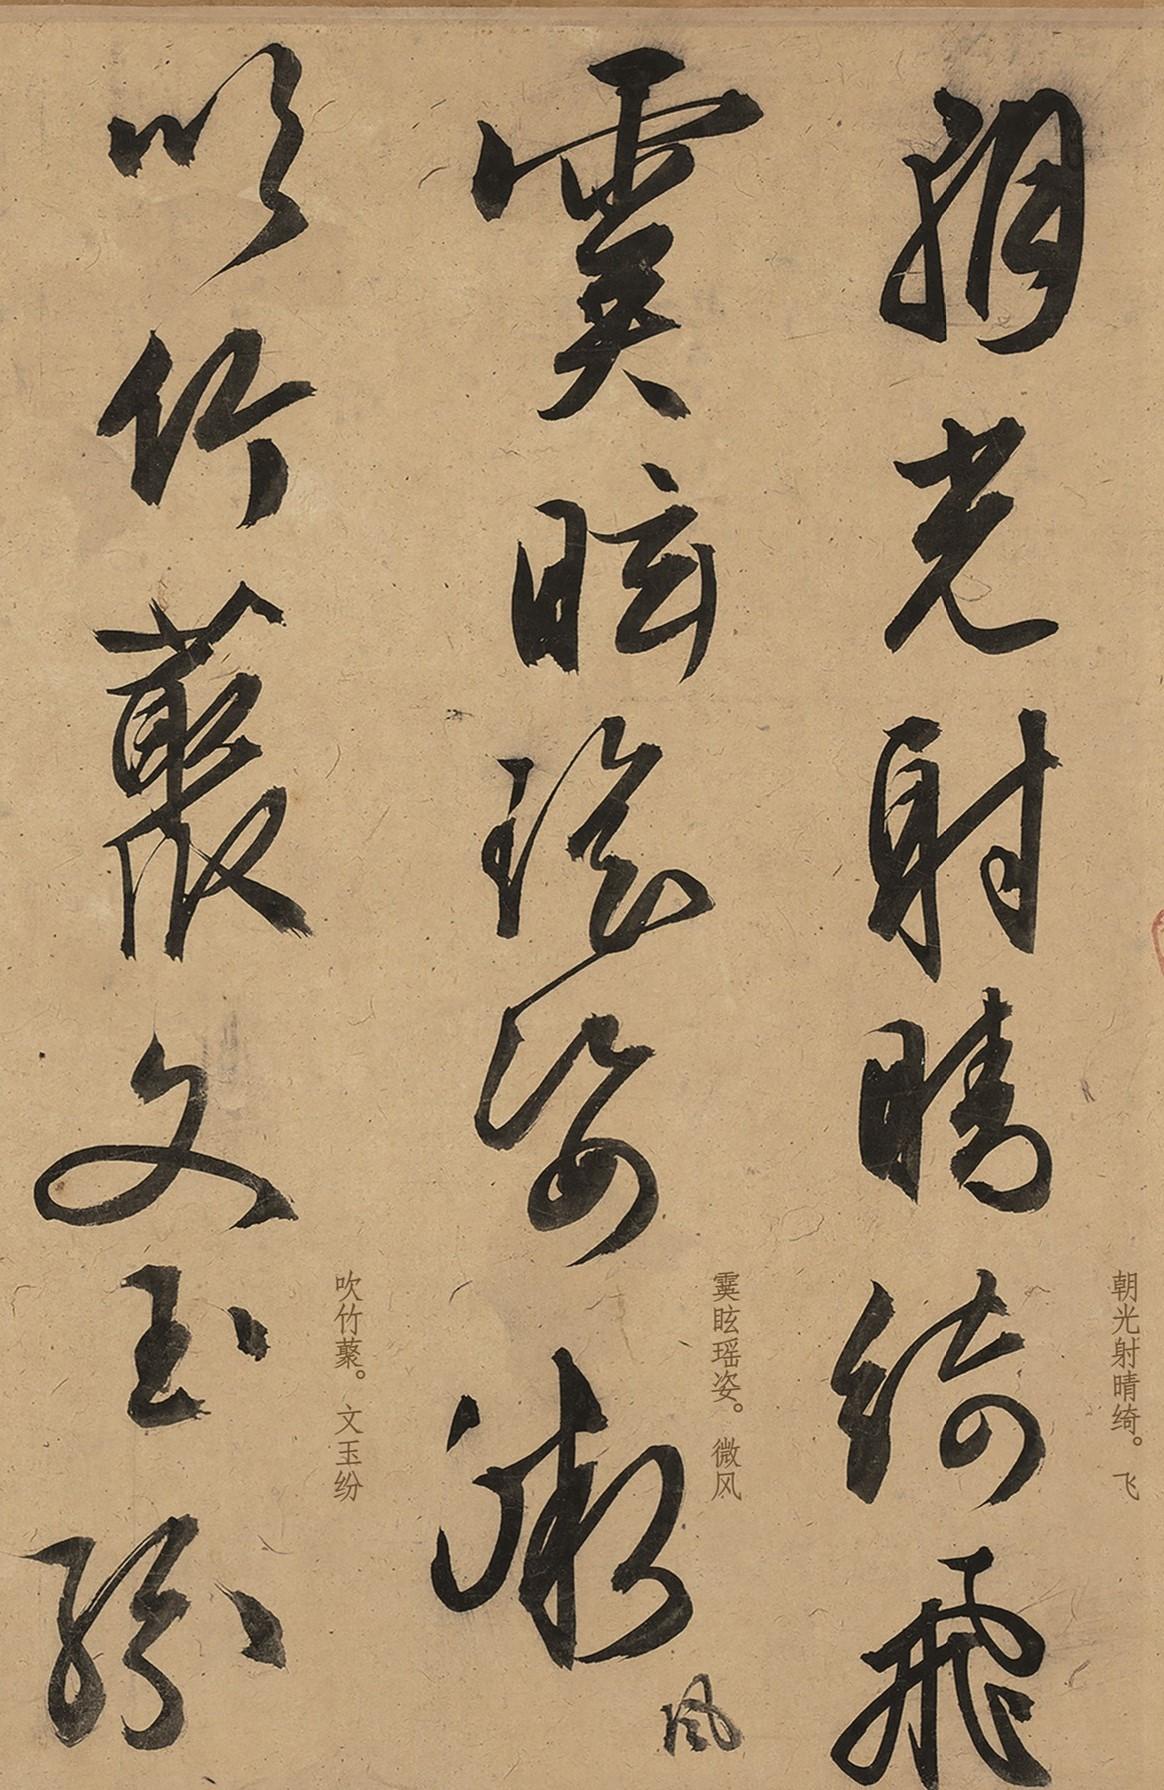 朝光射晴绮飞
朝光射晴绮。 飞
霙眩瑶姿微
风
霙眩瑶姿。 微风
吹竹藂文玉纷
吹竹藂。 文玉纷